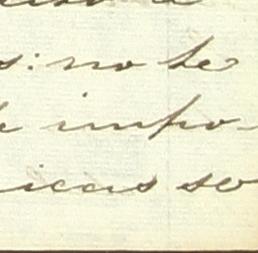 s: no te
impo-
icas so